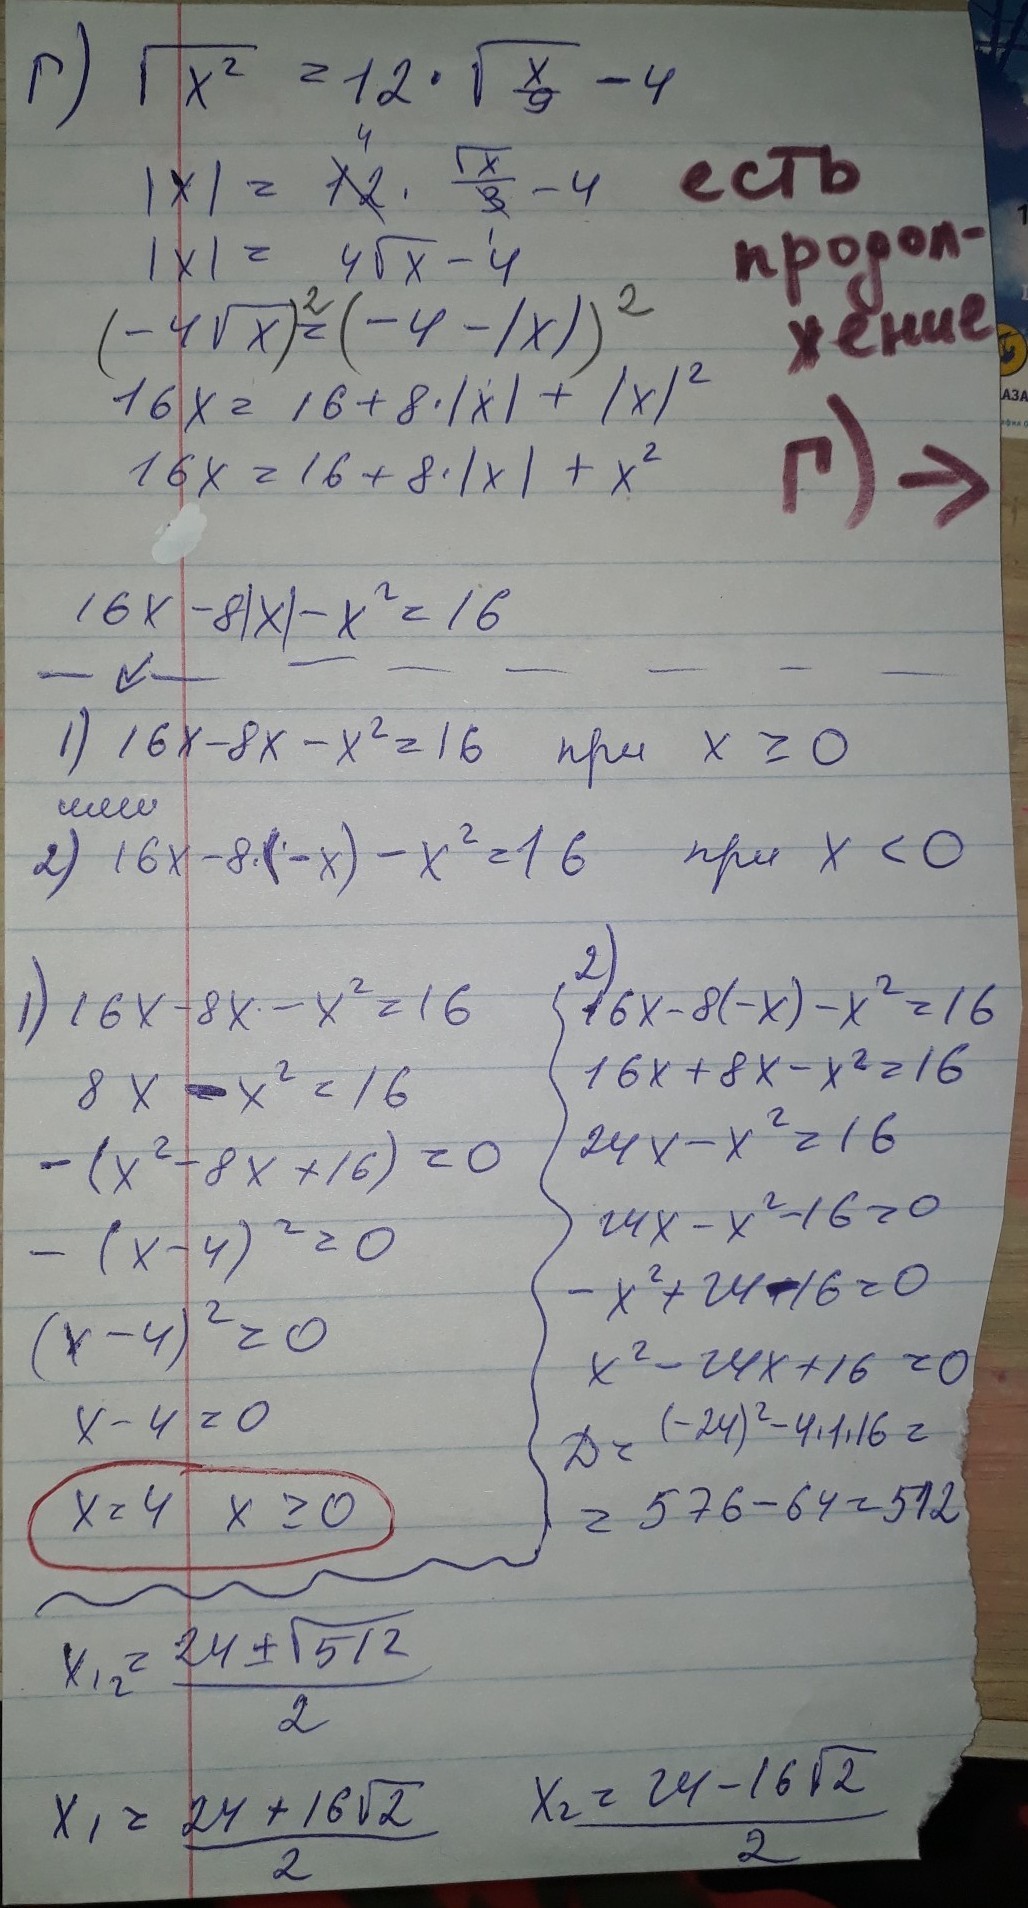 Г) √x² = 12 · √(x/9) − 4
|x| = 12 · √x/3 − 4
4
1
есть
|x| = 4√x − 4
продол-
(−4√x)² = (−4 − |x|)²
жение
16x = 16 + 8·|x| + |x|²
16x = 16 + 8·|x| + x²
Г) →
16x − 8|x| − x² = 16
1) 16x − 8x − x² = 16 при x ≥ 0
или
2) 16x − 8·(−x) − x² = 16 при x < 0
1) 16x − 8x − x² = 16
8x − x² = 16
− (x² − 8x + 16) = 0
− (x − 4)² = 0
(x − 4)² = 0
x − 4 = 0
x = 4 x ≥ 0
2)
16x − 8(−x) − x² = 16
16x + 8x − x² = 16
24x − x² = 16
24x − x² − 16 = 0
−x² + 24 − 16 = 0
x² − 24x + 16 = 0
D = (−24)² − 4·1·16 =
= 576 − 64 = 512
x₁₂ = (24 ± √512)/2
x₁ = (24 + 16√2)/2 x₂ = (24 − 16√2)/2